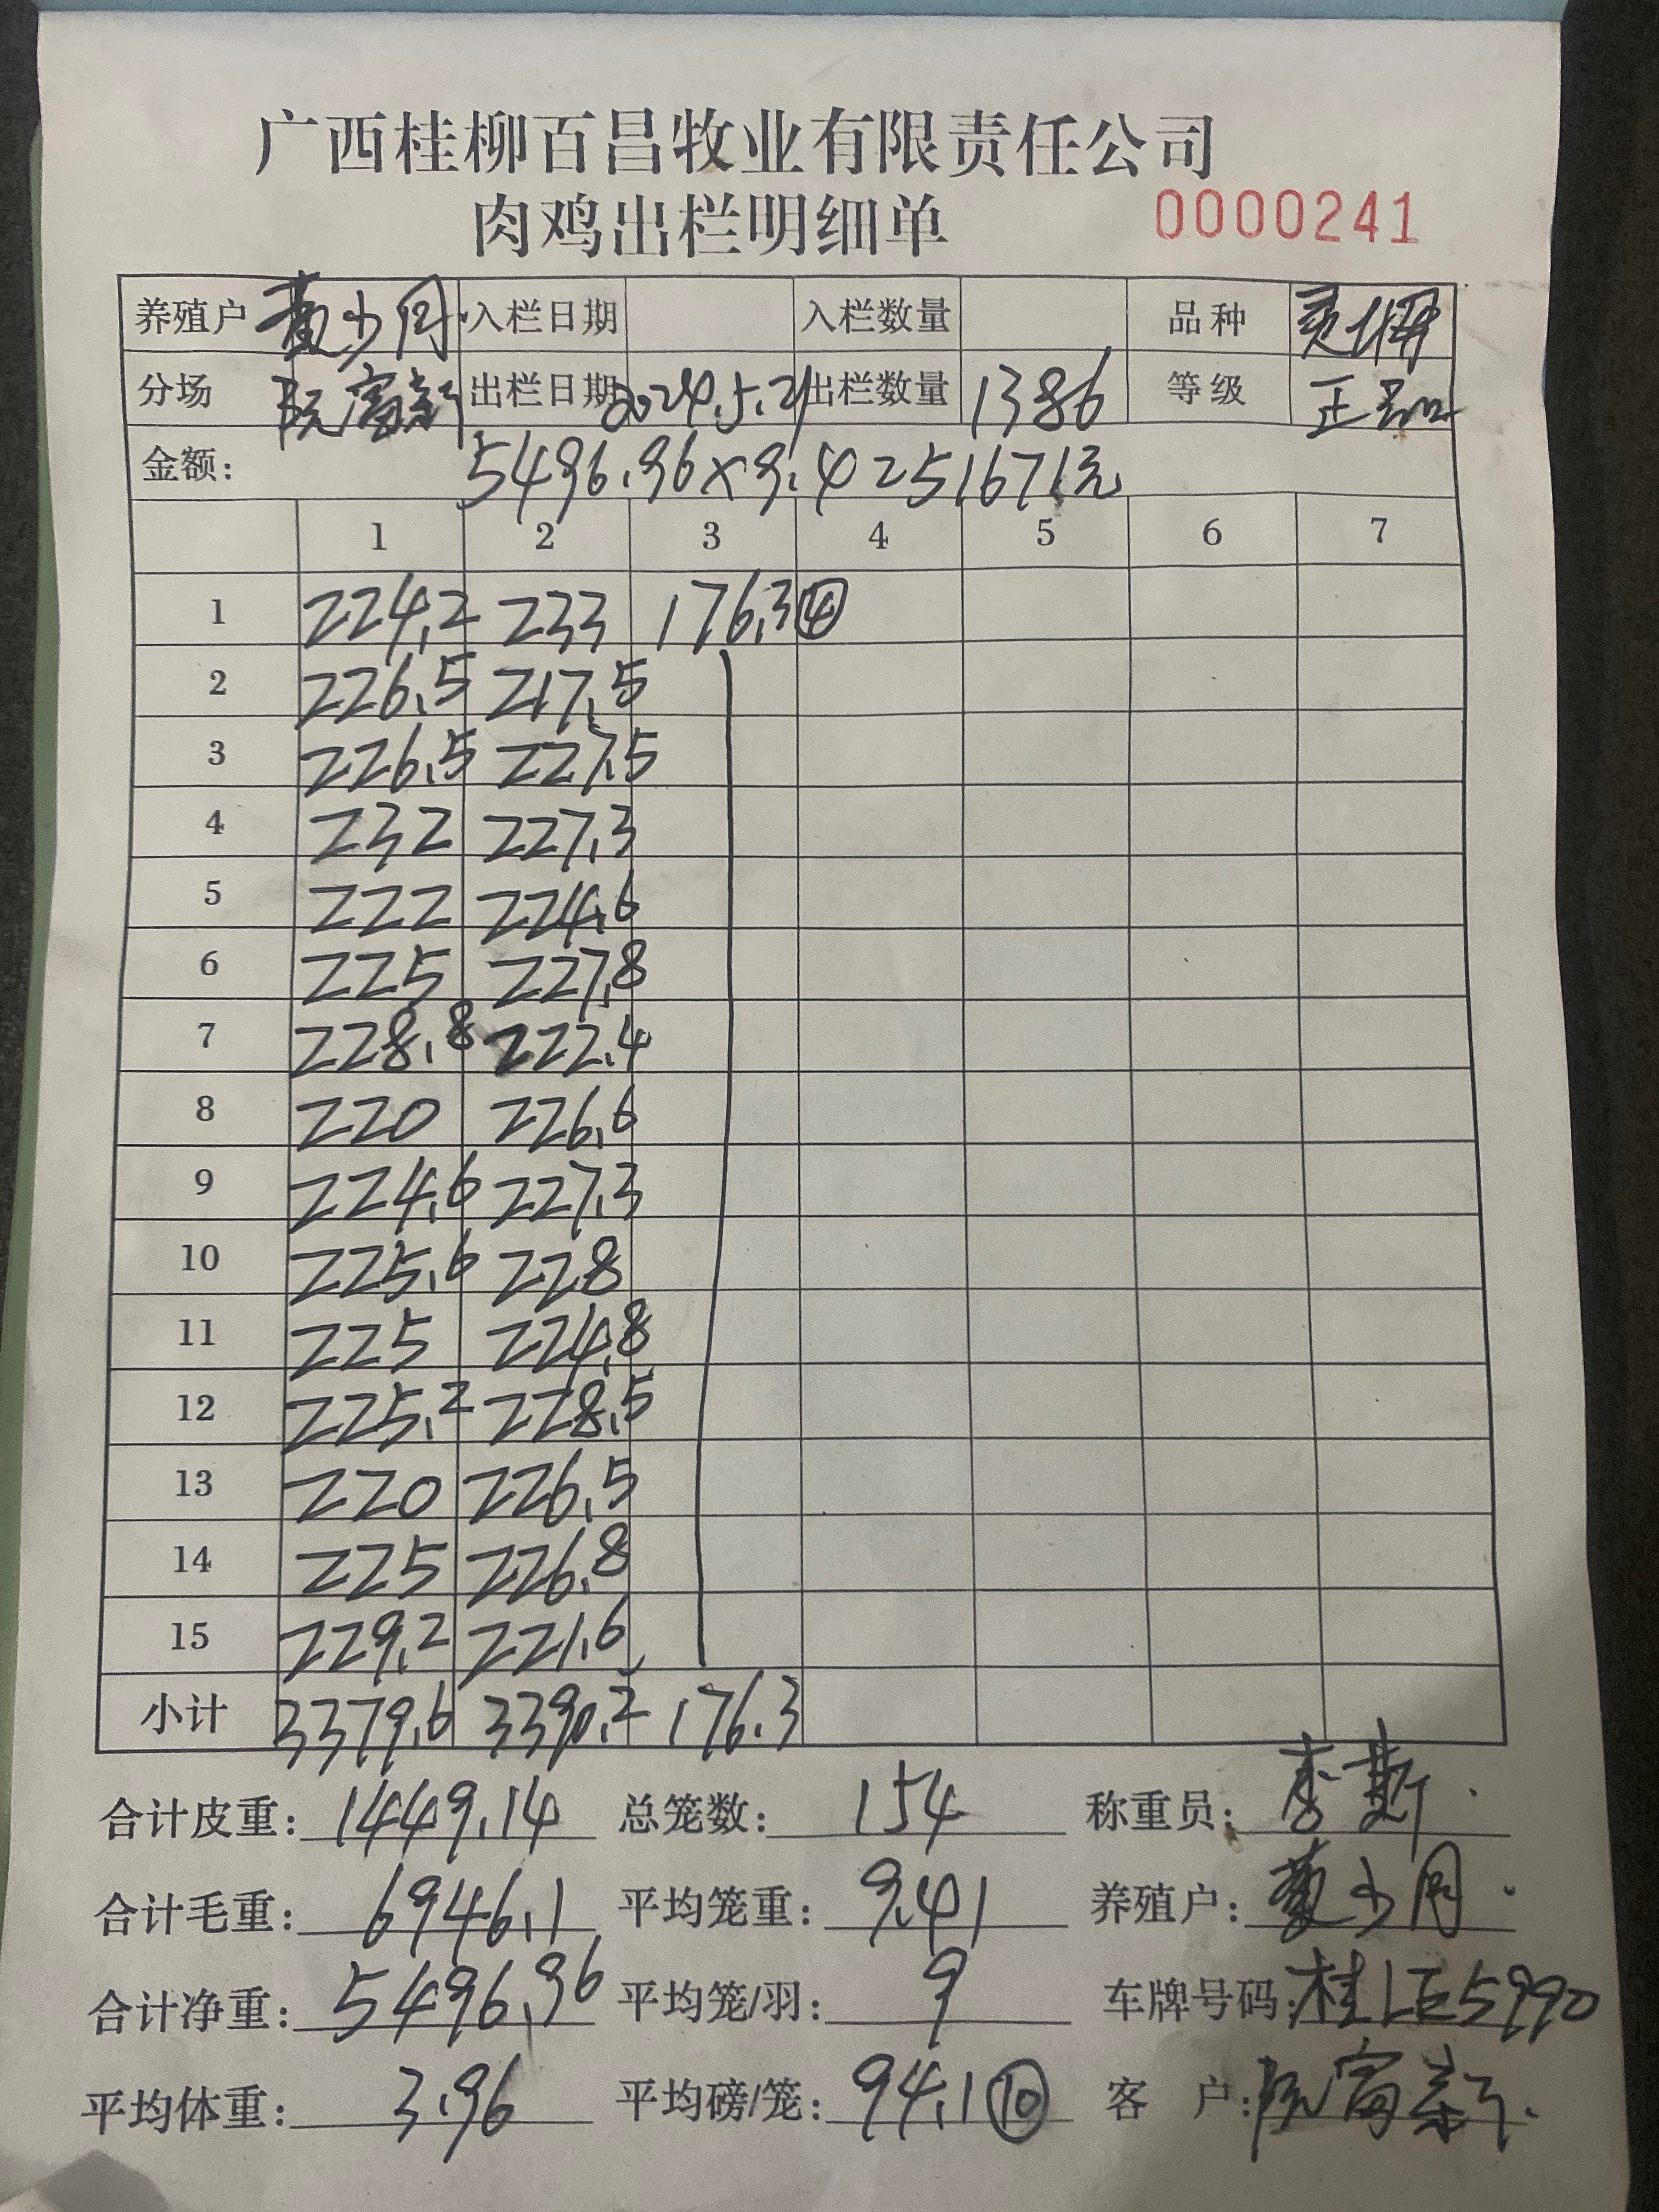 广西桂柳百昌牧业有限责任公司
肉鸡出栏明细单 0000241
养殖户 黄少月 入栏日期 入栏数量 品种
分场 阮富新 出栏日期 2024.5.21 出栏数量 1386 等级 正品
金额: 5496.96×9.4=51671元
1 2 3 4 5 6 7
1 224.2 233 176.3 ④
2 226.5 217.5
3 226.5 227.5
4 232 227.3
5 222 224.6
6 225 227.8
7 228.8 222.4
8 220 226.6
9 224.6 227.3
10 225.6 228
11 225 224.8
12 225.2 228.5
13 220 226.5
14 225 226.8
15 229.2 221.6
小计 3379.6 3390.2 176.3
合计皮重: 1449.14 总笼数: 154 称重员: 李
合计毛重: 6946.1 平均笼重: 9.41 养殖户: 黄少月
合计净重: 5496.96 平均笼/羽: 9 车牌号码: 桂LE5990
平均体重: 3.96 平均磅/笼: 94.1 ⑩ 客 户: 阮富新